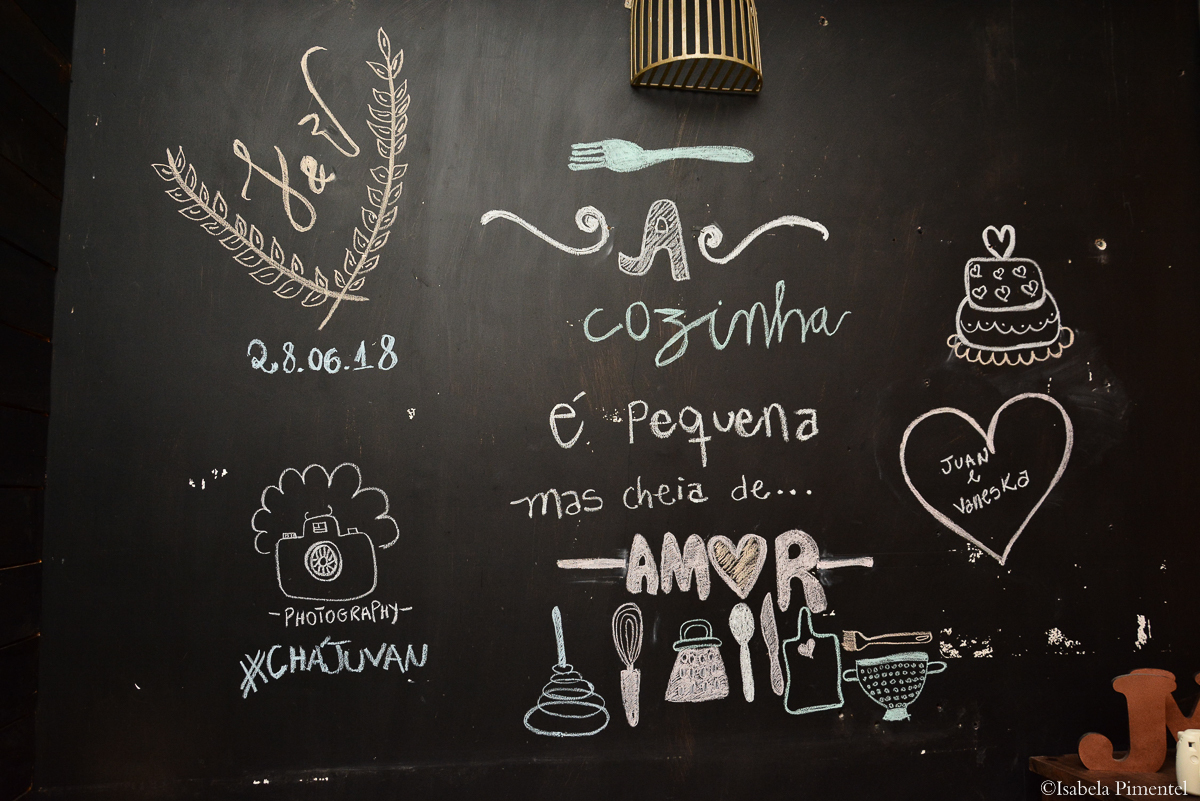 J & V
28.06.18
PHOTOGRAPHY
#CHÁJUVAN
A
cozinha
é pequena
mas cheia de...
AMOR
JUAN
e
Vaneska
J
©Isabela Pimentel